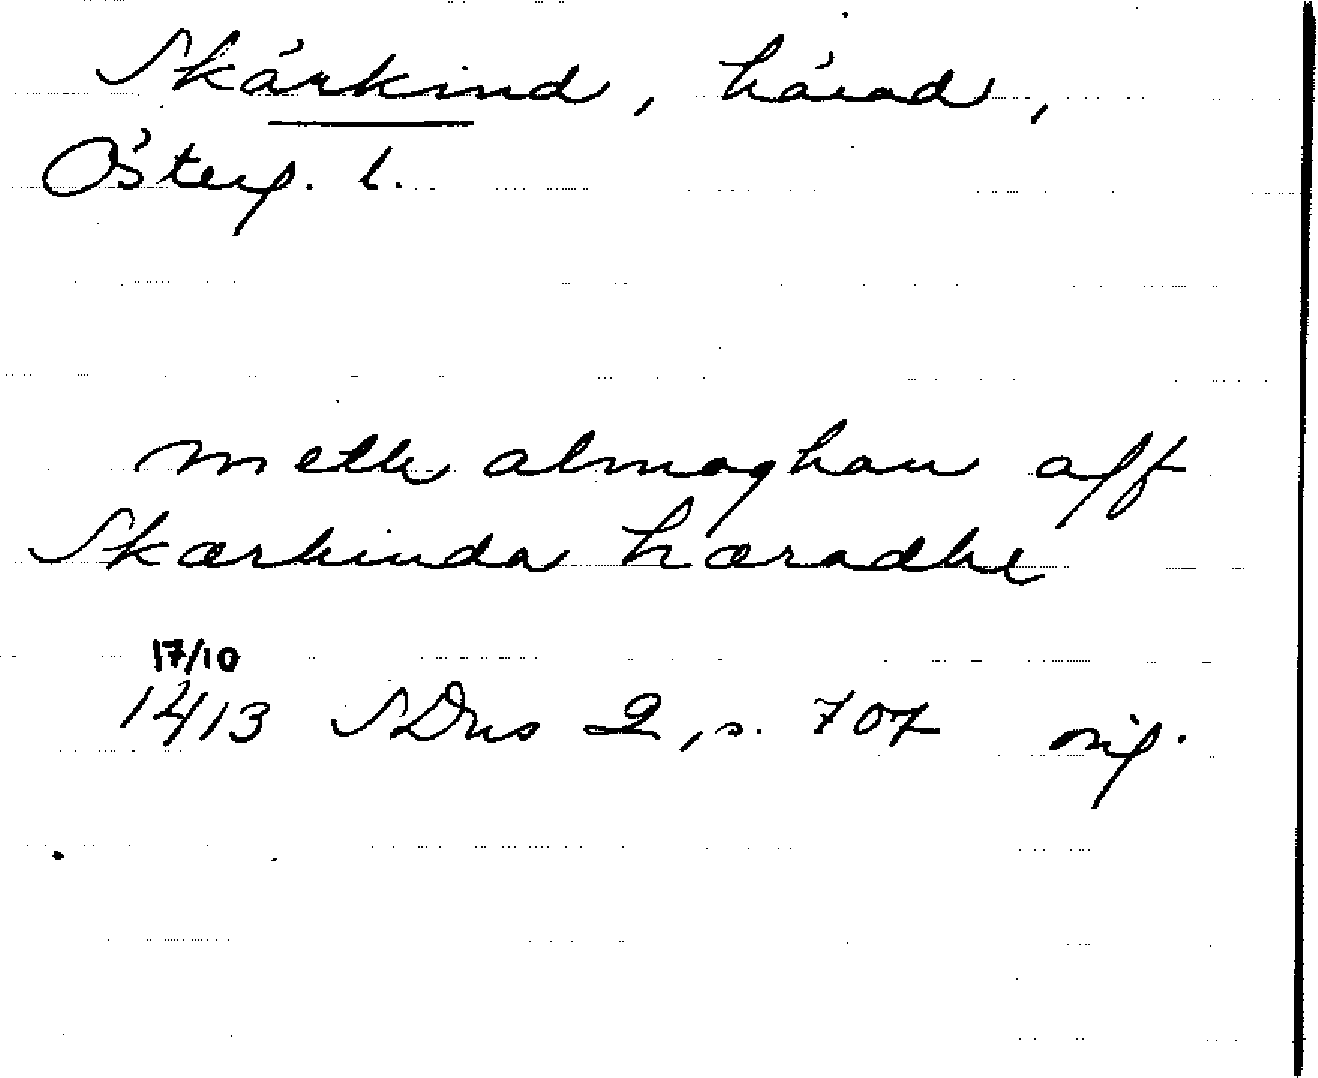 Skärkind, härad,
Österg. l.
mellæ almoghan aff
Skærkinda hæradhe
17/10
1413 SDns 2, s. 707 orig.